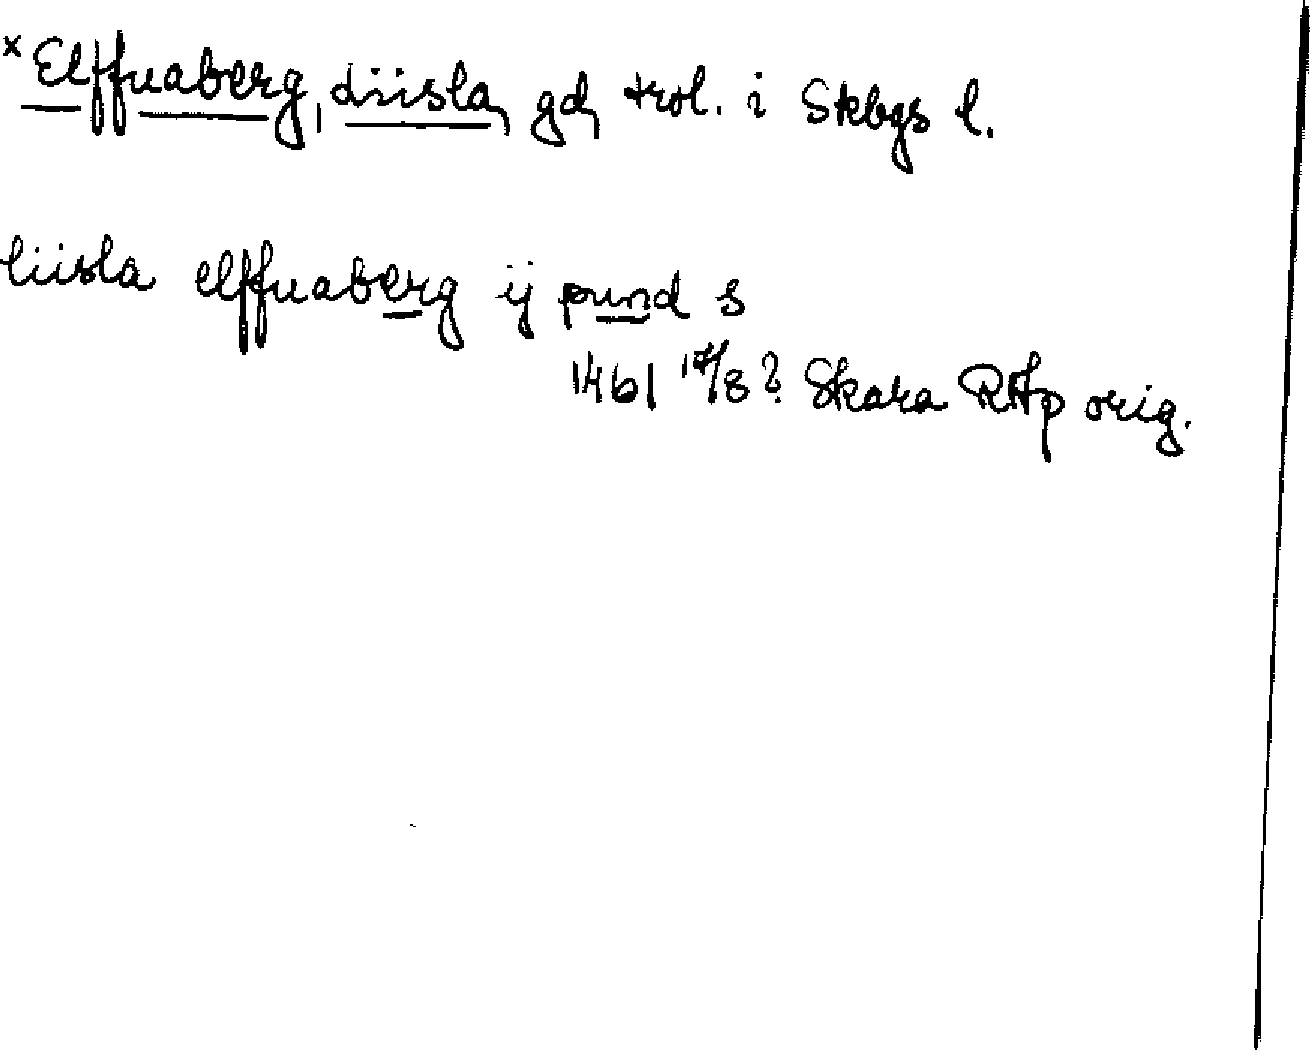 × Elffuaberg, diisla, gd, trol. i Skbgs l.
liisla elffuaberg ij pund s
1461 14/8? Skara RAp orig.